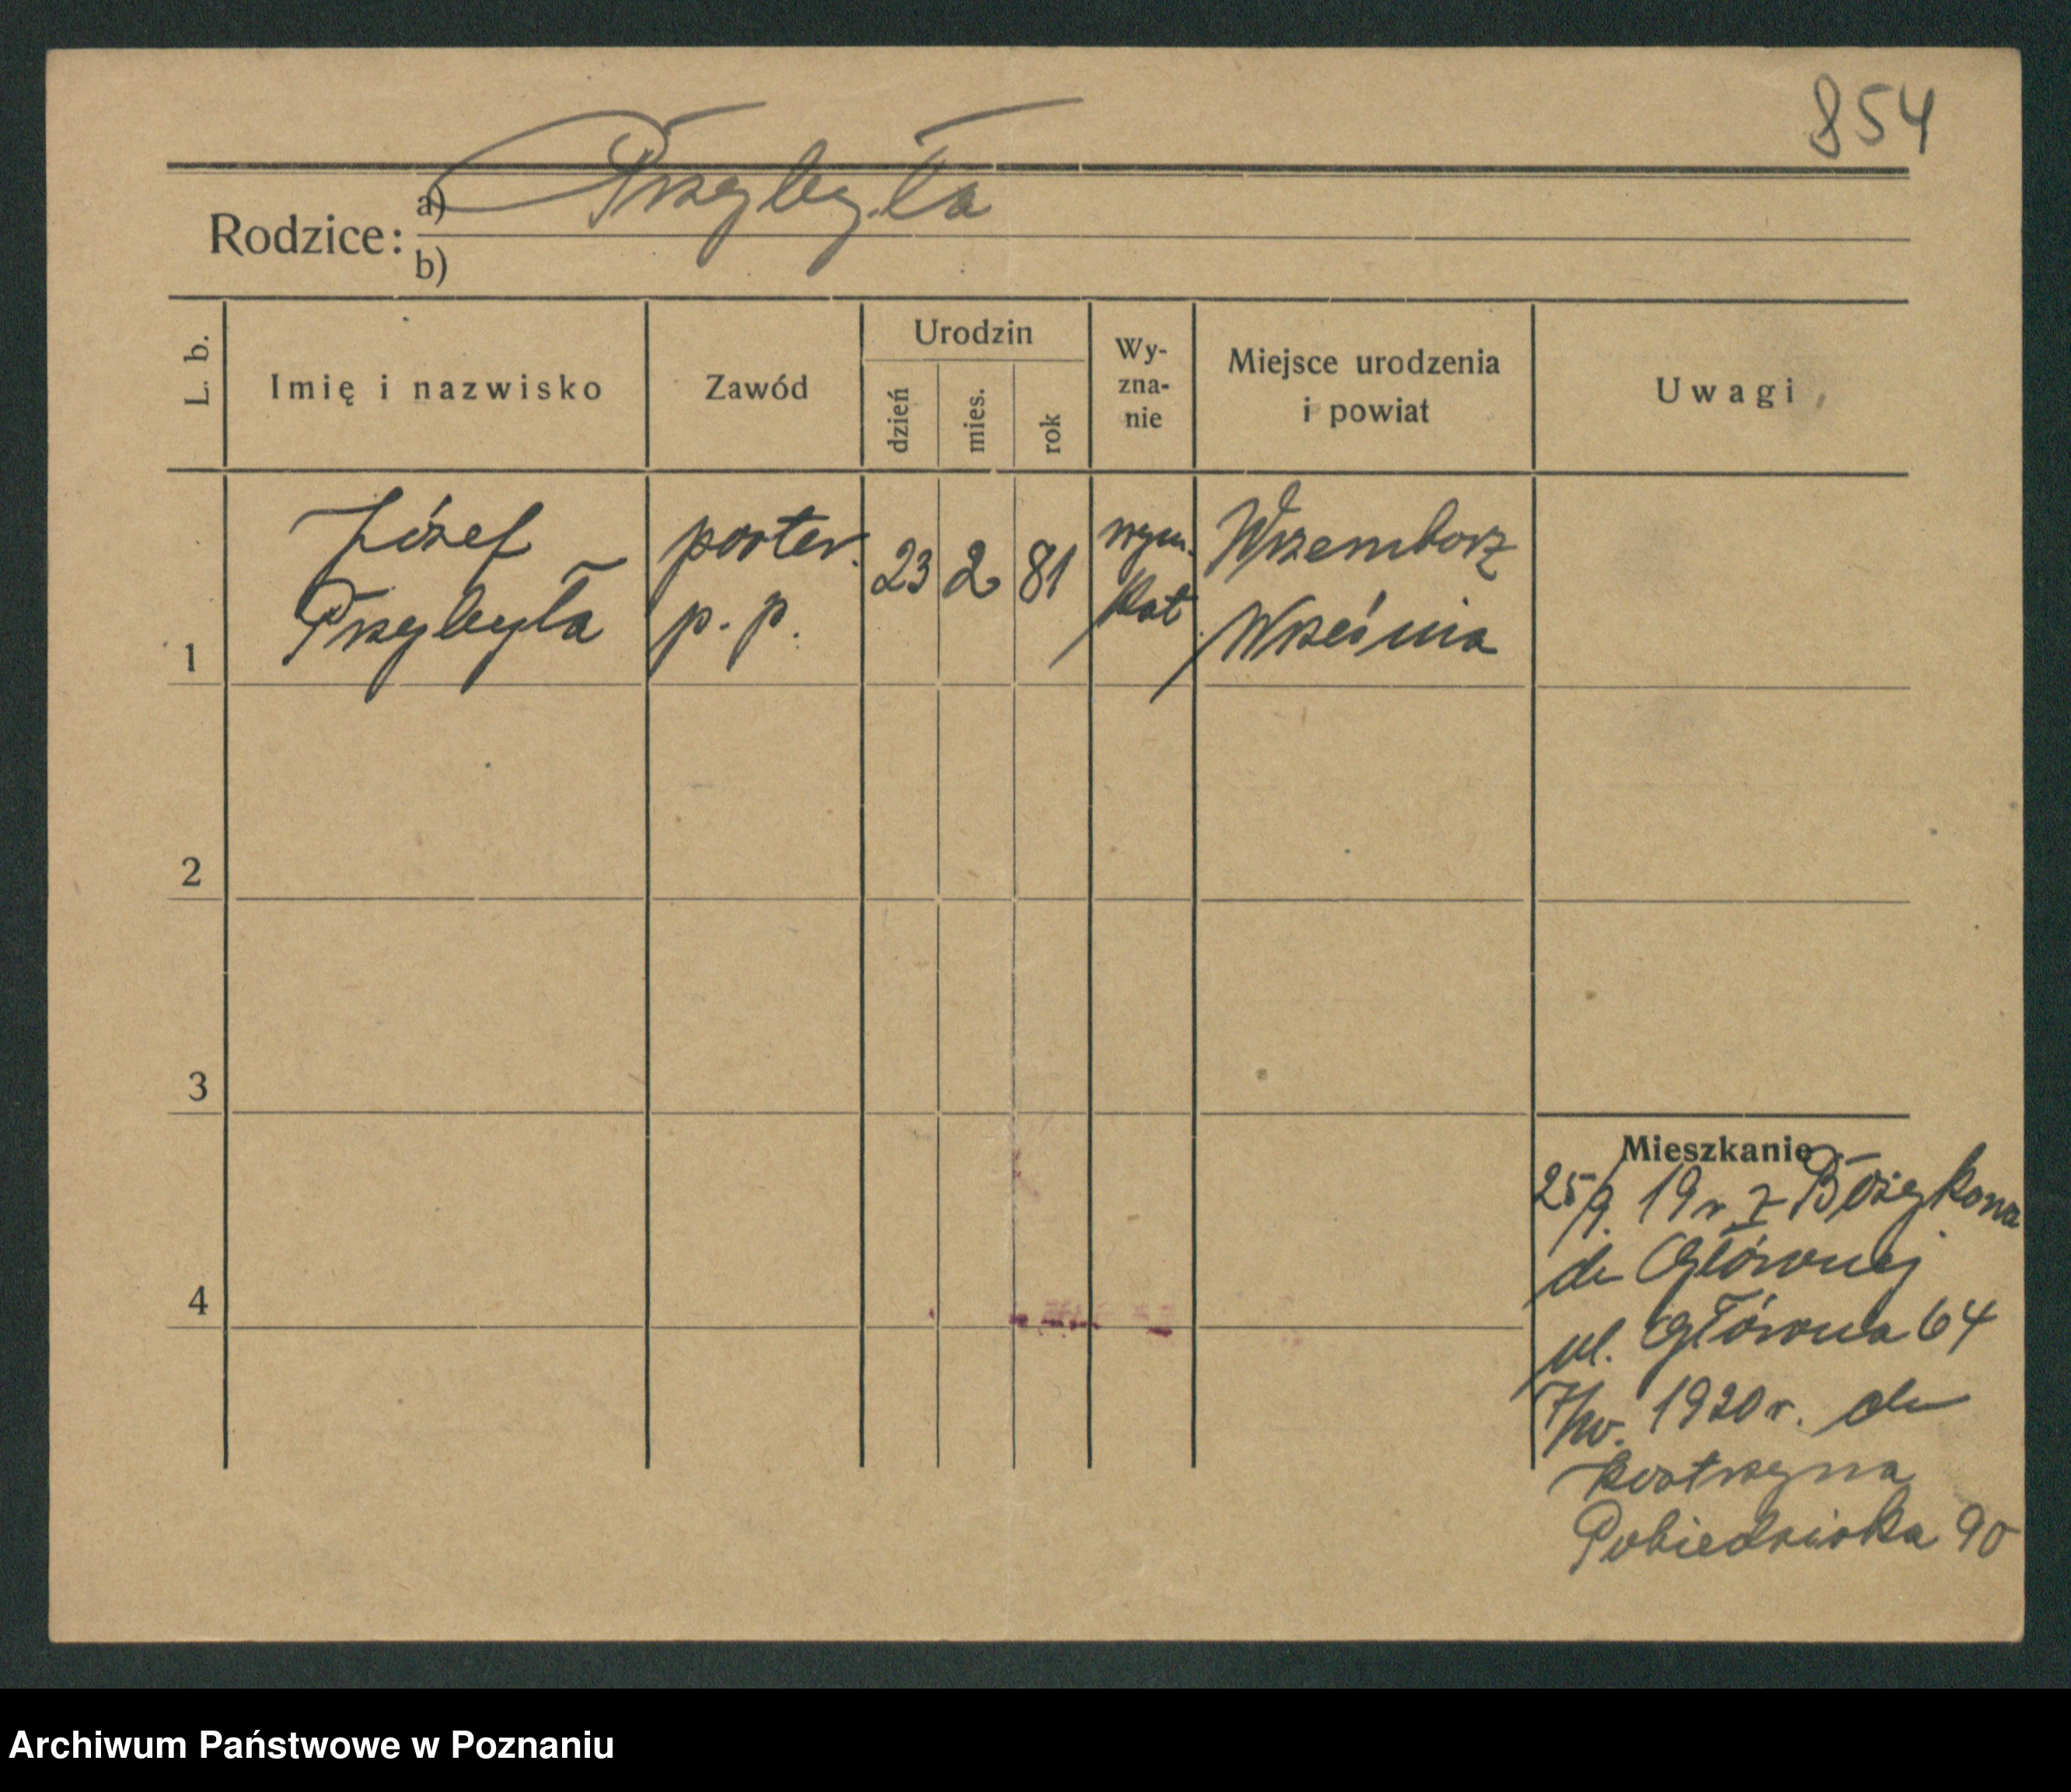 854
Rodzice: a) Przybyła
b)
L. b.
Imię i nazwisko
Zawód
Urodzin
dzień
mies.
rok
Wy-
zna-
nie
Miejsce urodzenia
i powiat
Uwagi
1
Józef
Przybyła
poster.
p. p.
23
2
81
rzym.
kat.
Wrzemborz
Września
2
3
4
Mieszkanie
25/9. 19 r z
do Głównej
ul. Główna 64
1920 r. do
Kostrzyna
Pobiedziska 90
Archiwum Państwowe w Poznaniu